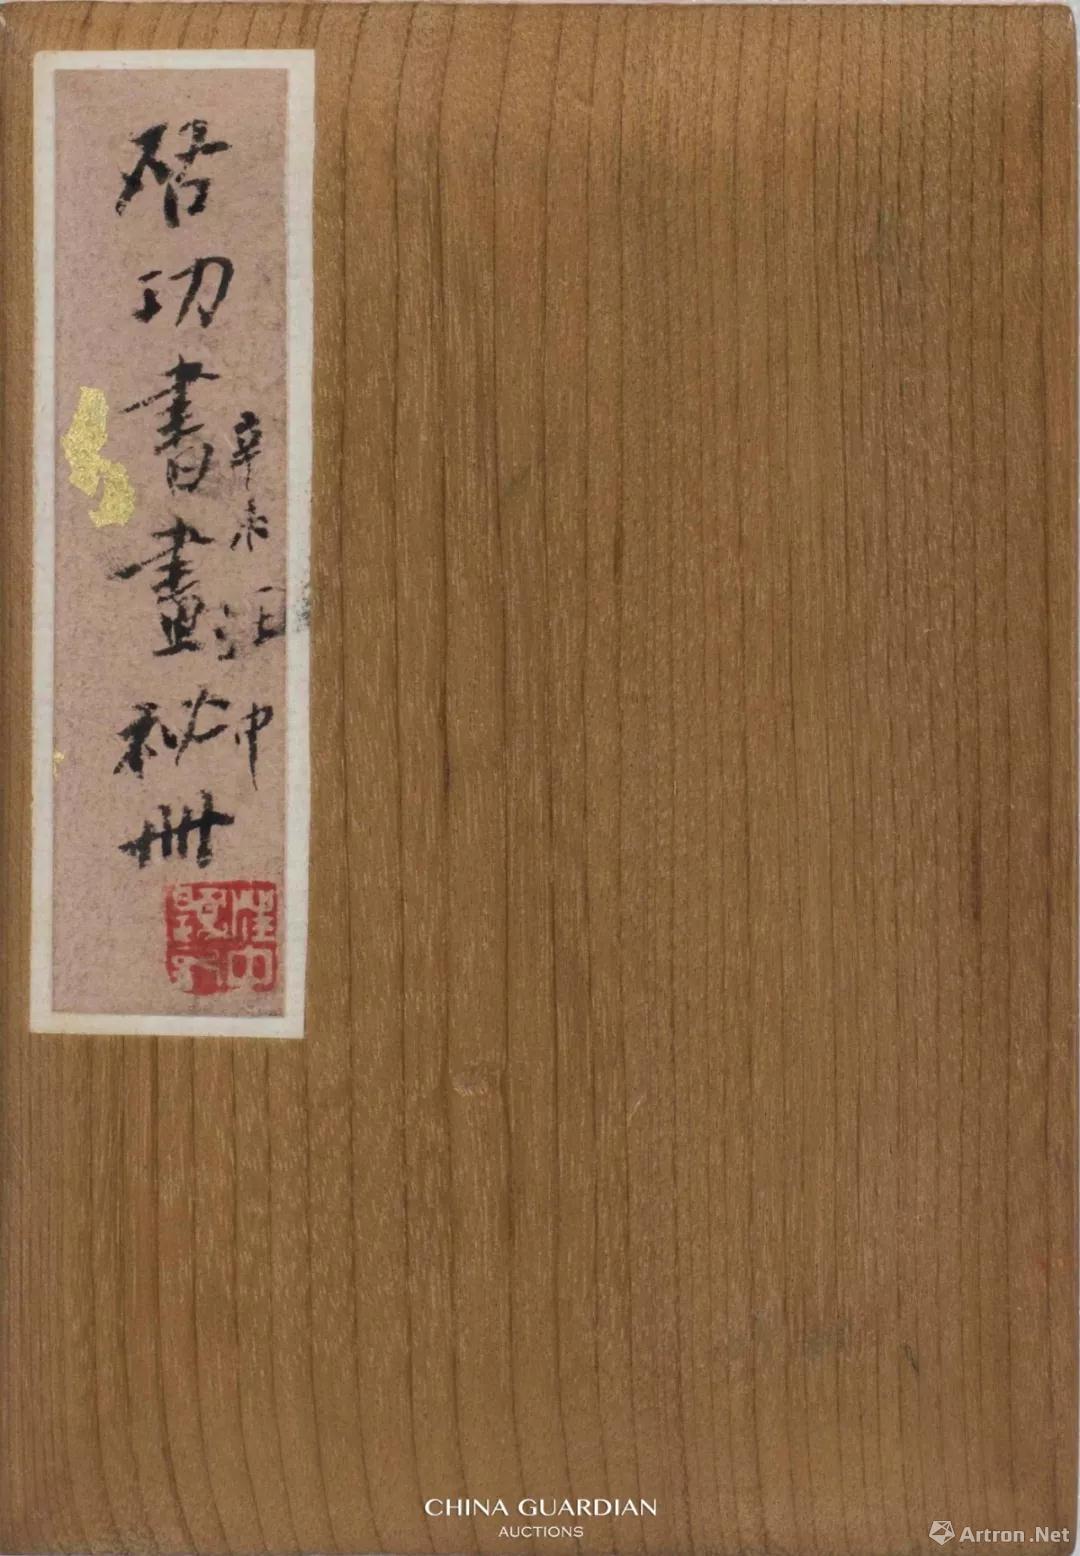 启功書畫秘冊
辛未
CHINA GUARDIAN
AUCTIONS
Artron.Net